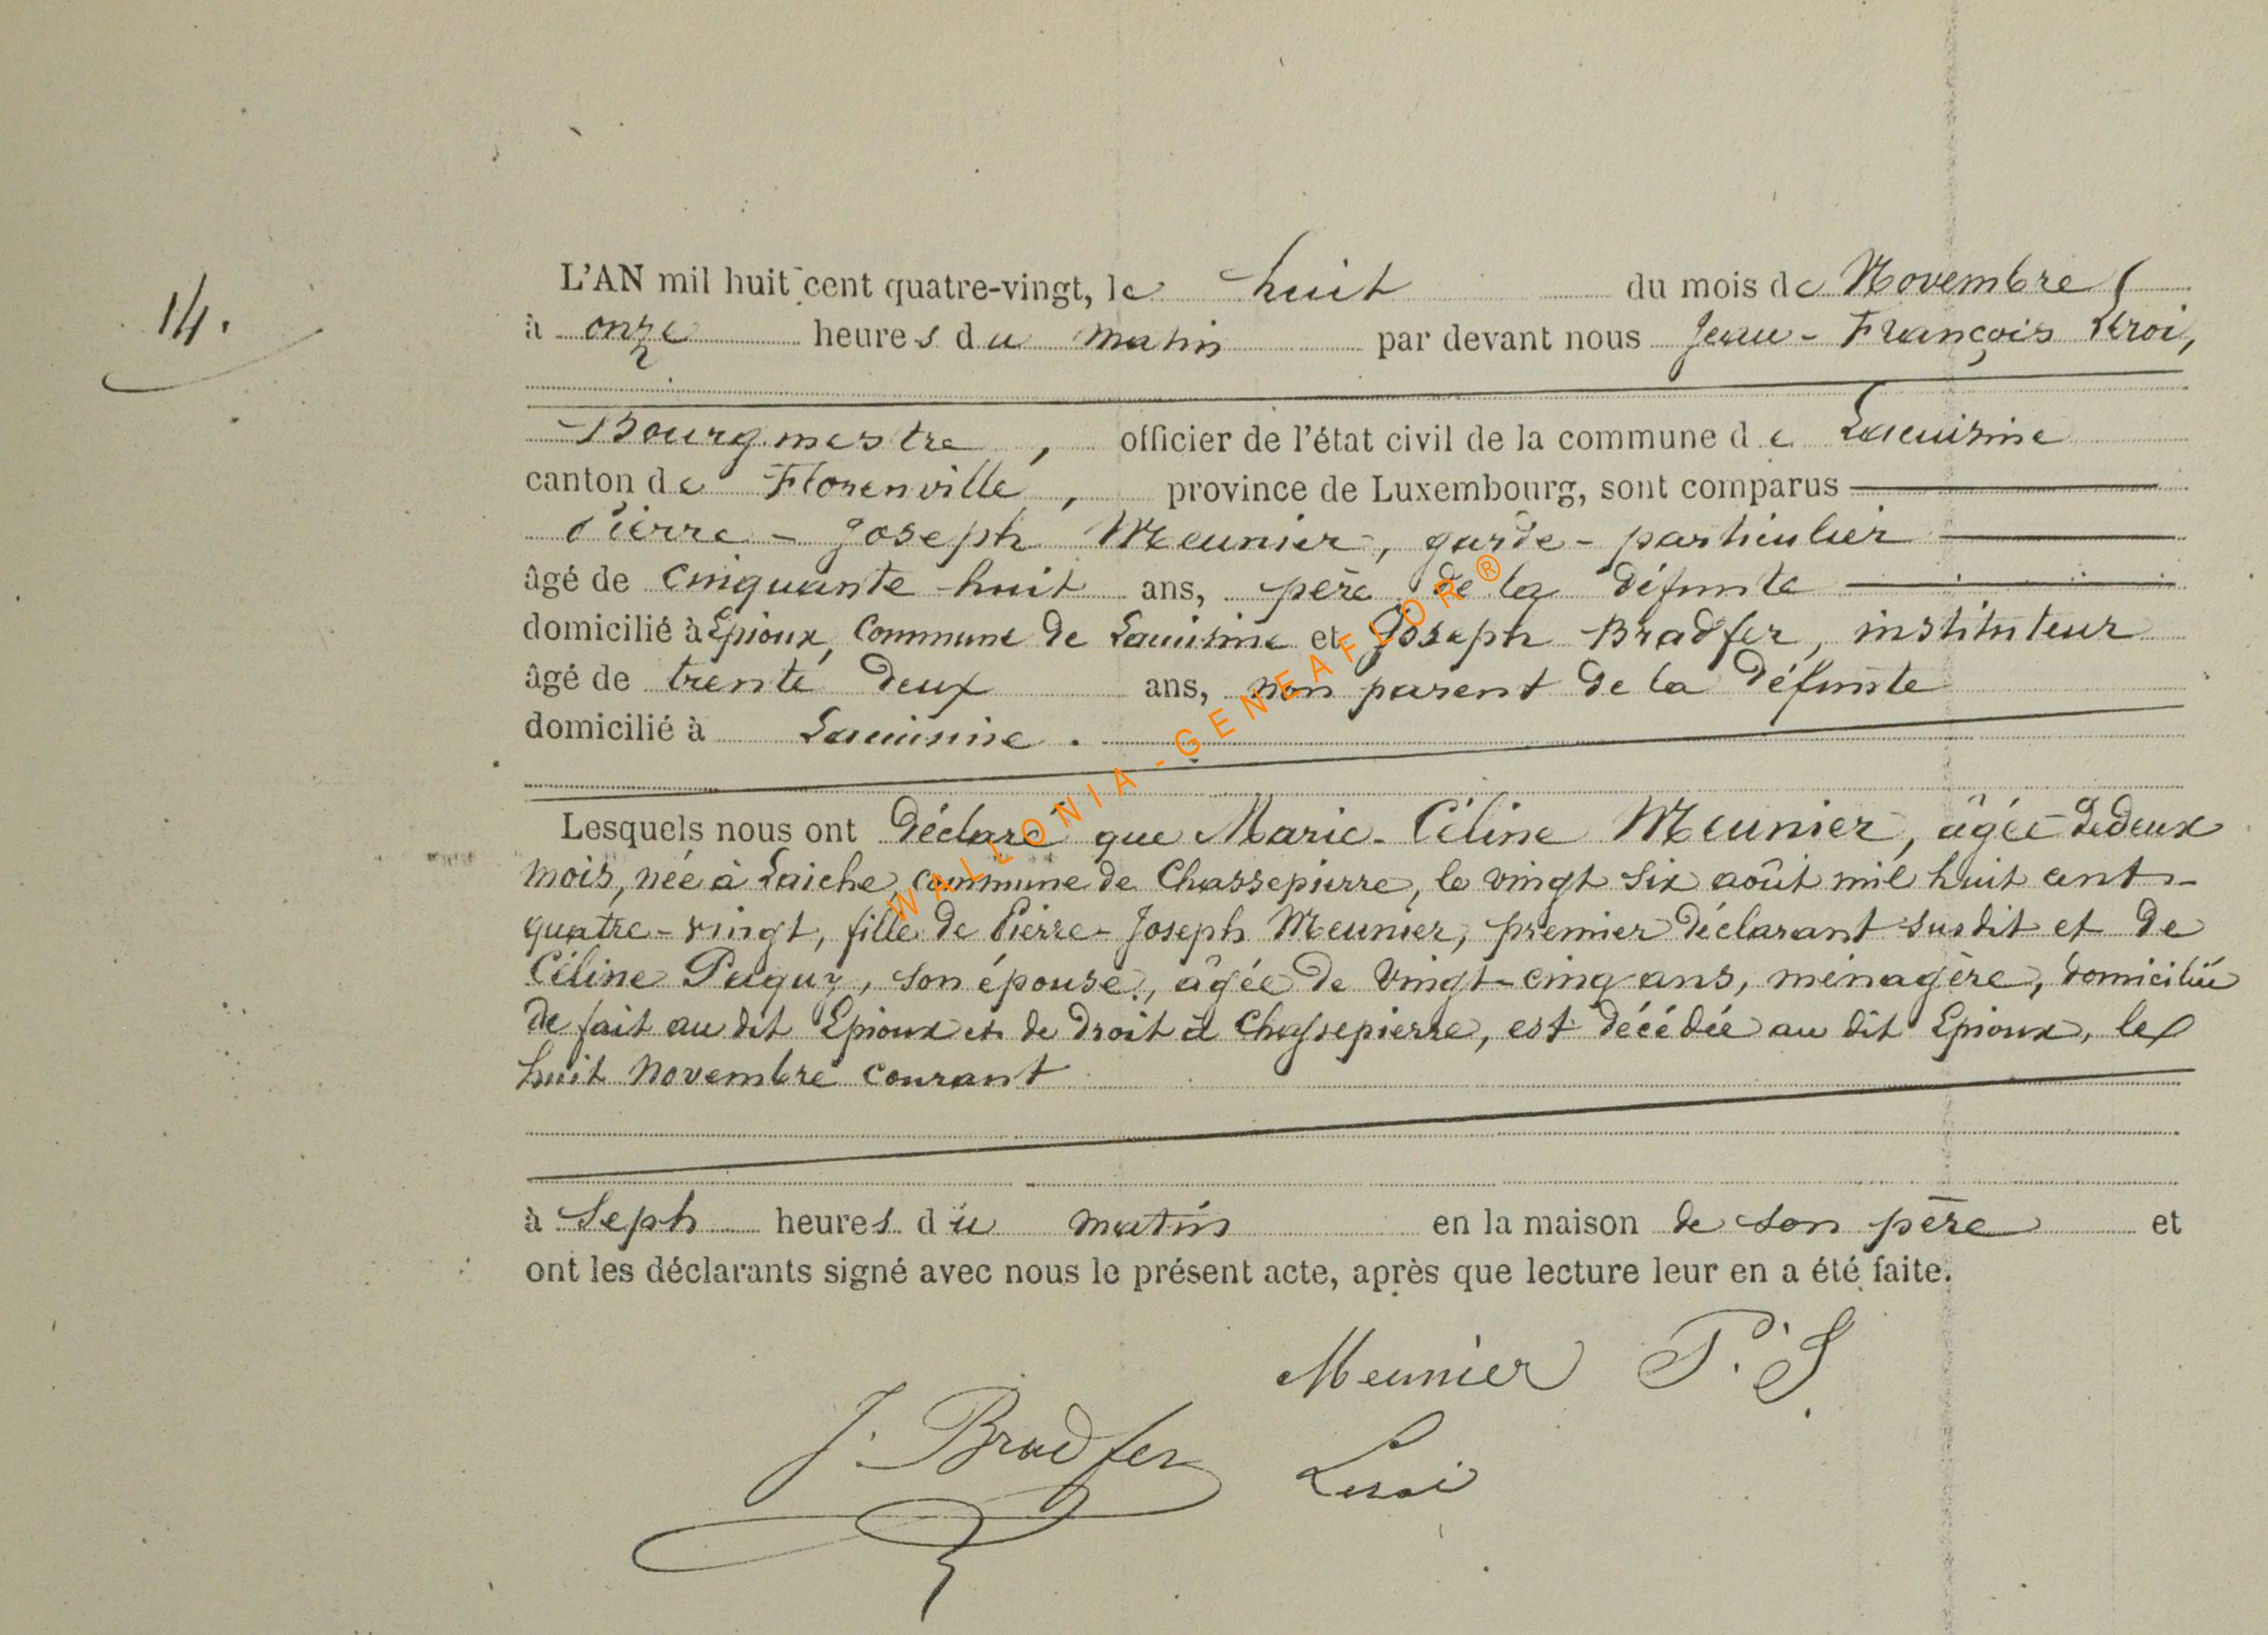 14.
L'AN mil huit cent quatre-vingt, le huit du mois de Novembre
à onze heures du matin par devant nous Jean-François Leroi,
Bourgmestre, officier de l'état civil de la commune de Lacuisine
canton de Florenville, province de Luxembourg, sont comparus
Pierre-Joseph Meunier, garde-particulier
âgé de cinquante huit ans, père de la défunte
domicilié à Epioux, Commune de Lacuisine et Joseph Bradfer, instituteur
âgé de trente deux ans, non parent de la défunte
domicilié à Lacuisine.
Lesquels nous ont déclaré que Marie-Céline Meunier, âgée de deux
mois, née à Laiche, commune de Chassepierre, le vingt six août mil huit cent-
quatre-vingt, fille de Pierre-Joseph Meunier, premier déclarant susdit et de
Céline Puguy, son épouse, âgée de vingt-cinq ans, ménagère, domiciliée
de fait au dit Epioux et de droit à Chassepierre, est décédée au dit Epioux, le
huit novembre courant
à Sept heures du matin en la maison de son père et
ont les déclarants signé avec nous le présent acte, après que lecture leur en a été faite.
Meunier P. J
J. Bradfer Leroi
WALLONIA-GENEAFLOR®